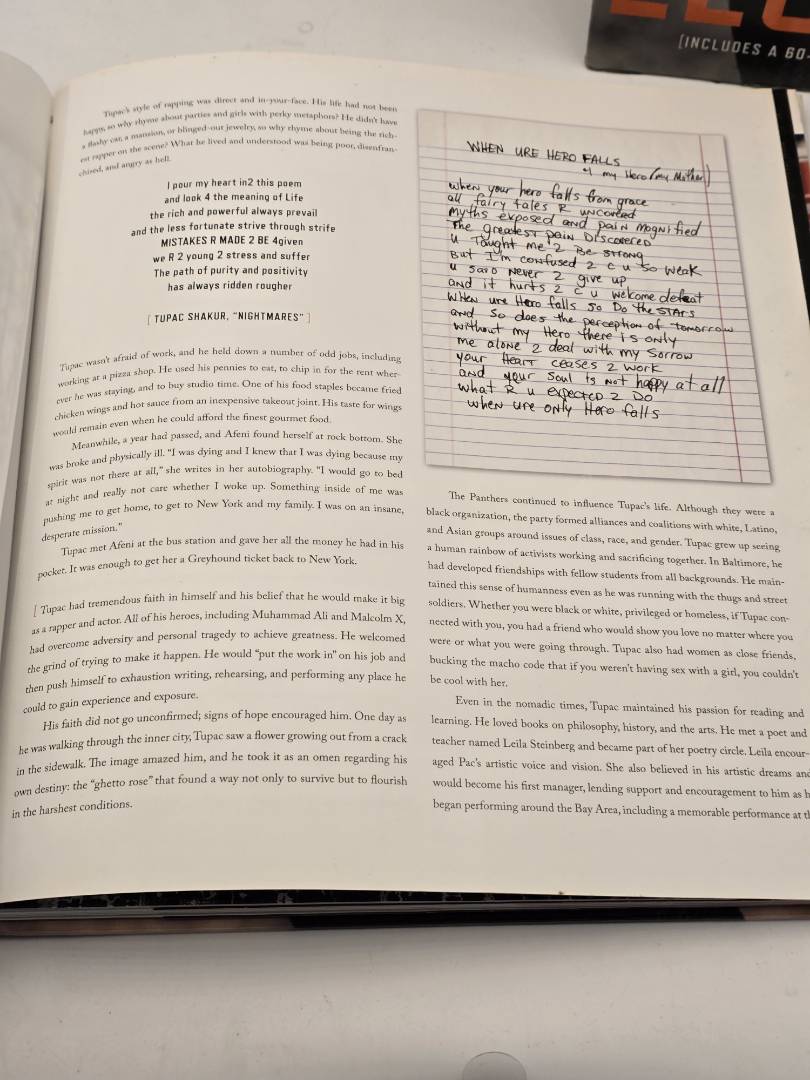 Tupac's style of rapping was direct and in-your-face. His life had not been
happy, so why rhyme about parties and girls with perky metaphors? He didn't have
a flashy car, a mansion, or blinged-out jewelry, so why rhyme about being the rich-
est rapper on the scene? What he lived and understood was being poor, disenfran-
chised, and angry as hell.
I pour my heart in2 this poem
and look 4 the meaning of Life
the rich and powerful always prevail
and the less fortunate strive through strife
MISTAKES R MADE 2 BE 4given
we R 2 young 2 stress and suffer
The path of purity and positivity
has always ridden rougher
[ TUPAC SHAKUR, "NIGHTMARES" ]
Tupac wasn't afraid of work, and he held down a number of odd jobs, including
working at a pizza shop. He used his pennies to eat, to chip in for the rent wher-
ever he was staying, and to buy studio time. One of his food staples became fried
chicken wings and hot sauce from an inexpensive takeout joint. His taste for wings
would remain even when he could afford the finest gourmet food.
Meanwhile, a year had passed, and Afeni found herself at rock bottom. She
was broke and physically ill. "I was dying and I knew that I was dying because my
spirit was not there at all," she writes in her autobiography. "I would go to bed
at night and really not care whether I woke up. Something inside of me was
pushing me to get home, to get to New York and my family. I was on an insane,
desperate mission."
Tupac met Afeni at the bus station and gave her all the money he had in his
pocket. It was enough to get her a Greyhound ticket back to New York.
[ Tupac had tremendous faith in himself and his belief that he would make it big
as a rapper and actor. All of his heroes, including Muhammad Ali and Malcolm X,
had overcome adversity and personal tragedy to achieve greatness. He welcomed
the grind of trying to make it happen. He would "put the work in" on his job and
then push himself to exhaustion writing, rehearsing, and performing any place he
could to gain experience and exposure.
His faith did not go unconfirmed; signs of hope encouraged him. One day as
he was walking through the inner city, Tupac saw a flower growing out from a crack
in the sidewalk. The image amazed him, and he took it as an omen regarding his
own destiny: the "ghetto rose" that found a way not only to survive but to flourish
in the harshest conditions.
WHEN URE HERO FALLS
4 my Hero (my Mother)
when your hero falls from grace
all fairy tales R uncovered
Myths exposed and pain magnified
The greatest pain Discovered
u Taught me 2 Be strong
But I'm confused 2 c u so weak
u said Never 2 give up
and it hurts 2 c u welcome defeat
When ure Hero falls so Do the stars
and so does the perception of tomorrow
without my Hero there is only
me alone 2 deal with my sorrow
your Heart ceases 2 work
and your soul is not happy at all
what R u expected 2 Do
when ure only Hero falls
The Panthers continued to influence Tupac's life. Although they were a
black organization, the party formed alliances and coalitions with white, Latino,
and Asian groups around issues of class, race, and gender. Tupac grew up seeing
a human rainbow of activists working and sacrificing together. In Baltimore, he
had developed friendships with fellow students from all backgrounds. He main-
tained this sense of humanness even as he was running with the thugs and street
soldiers. Whether you were black or white, privileged or homeless, if Tupac con-
nected with you, you had a friend who would show you love no matter where you
were or what you were going through. Tupac also had women as close friends,
bucking the macho code that if you weren't having sex with a girl, you couldn't
be cool with her.
Even in the nomadic times, Tupac maintained his passion for reading and
learning. He loved books on philosophy, history, and the arts. He met a poet and
teacher named Leila Steinberg and became part of her poetry circle. Leila encour-
aged Pac's artistic voice and vision. She also believed in his artistic dreams and
would become his first manager, lending support and encouragement to him as h
began performing around the Bay Area, including a memorable performance at t
[INCLUDES A 60-